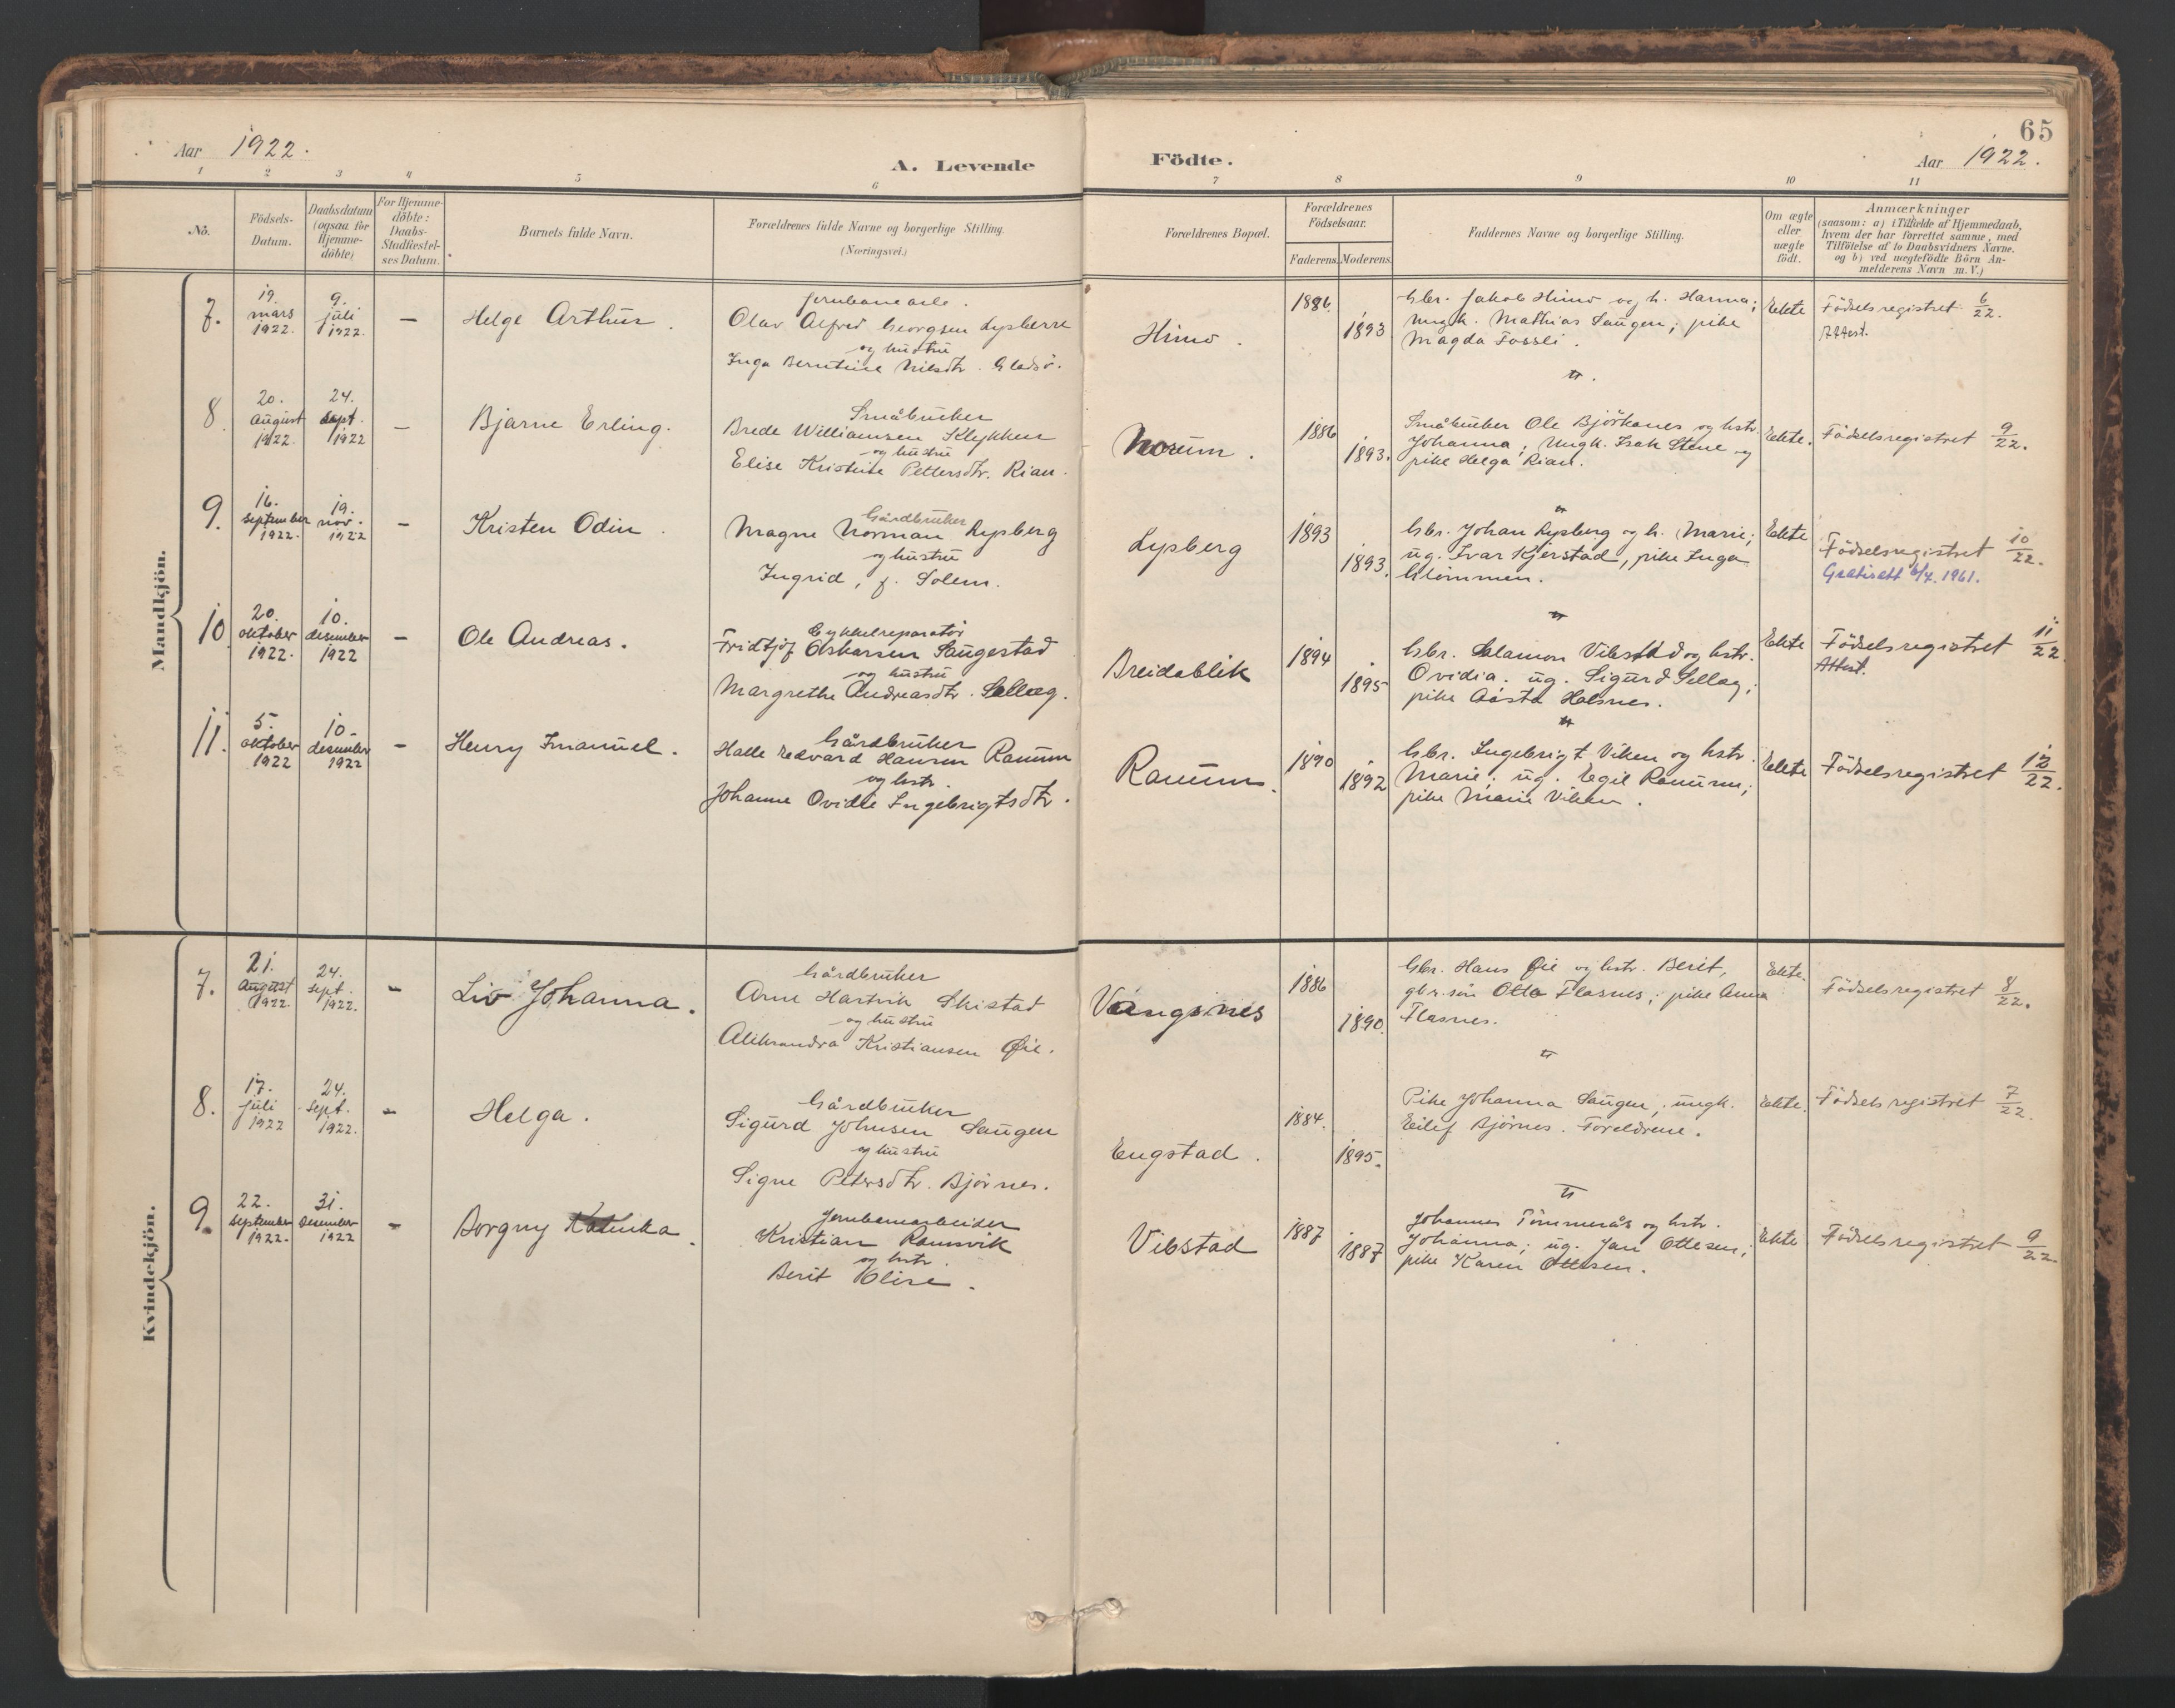 65
Aar 1922.
A. Levende Födte.
Aar 1922.
1 2 3 4 5 6 7 8 9 10 11
No.
Födsels-
Datum.
Daabsdatum
(ogsaa for
Hjemme-
döbte)
For Hjemme-
döbte:
Daabs-
Stadfæstel-
ses Datum.
Barnets fulde Navn.
Forældrenes fulde Navne og borgerlige Stilling.
(Næringsvei.)
Forældrenes Bopæl.
Forældrenes
Födselsaar.
Faderens. Moderens.
Faddernes Navne og borgerlige Stilling.
Om ægte
eller
uægte
födt.
Anmærkninger
(saasom: a) i Tilfælde af Hjemmedaab,
hvem der har forrettet samme, med
Tilföielse af to Daabsvidners Navne.
og b) ved uægtefödte Börn An-
melderens Navn m.V.)
Mandkjön.
7.
19.
mars
1922.
9.
juli
1922.
–
Helge Arthur.
Jernbanearb.
Olav Alfred Georgsen Lysberg
og hustru
Inga Berntine Nilsdtr. Gladsø.
Himo.
1886.
1893
Gbr. Jakob Himo og h. Hanna;
ungk. Mathias Saugen; pike
Magda Fossli.
Ekte
Födselsregistret 6/22.
Attest.
8.
20.
august
1922.
24.
sept.
1922
–
Bjarne Erling.
Småbruker
Brede Williamsen Klykken
og hustru
Elise Kristine Pettersdtr. Rian.
Norum.
1886
1893.
Småbruker Ole Björkanes og hstr.
Johanna; Ungk. Isak Stene og
pike Helga Rian.
Ekte.
Födselsregistret 9/22.
9.
16.
september
1922.
19.
nov.
1922
–
Kristen Odin.
Gårdbruker
Magne Norman Lysberg
og hustru
Ingrid, f. Solem.
Lysberg
1893
1893.
Gbr. Johan Lysberg og h. Marie;
ug. Ivar Kjerstad, pike Inga
Glömmen.
Ekte
Födselsregistret 10/22.
Gratisatt 6/4. 1961.
10
20.
oktober
1922.
10.
desember
1922
–
Ole Andreas.
Cykkelreparatör
Fridtjof Oskarsen Saugestad
og hustru
Margrethe Andreasdtr. Sellæg.
Breidablik
1894
1895
Gbr. Salamon Vibstad og hstr.
Ovidia. ug. Sigurd Sellæg;
pike Aasta Halsnes.
Ekte
Födselsregistret 11/22.
Attest.
11.
5.
oktober
1922
10.
desember
1922
–
Henry Imanuel.
Gårdbruker
Halle Edvard Hansen Ranum
og hstr.
Johanne Ovidie Ingebrigtsdtr.
Ranum.
1890
1892
Gbr. Ingebrigt Viken og hstr.
Marie. ug. Egil Ranum;
pike Marie Viken.
Ekte
Födselsregistret 12/22.
Kvindekjön.
7.
21.
august
1922.
24.
sept.
1922.
–
Liv Johanna.
Gårdbruker
Arne Hartvik Skistad
og hustru
Aleksandra Kristiansen Øie.
Vangsnes
1886
1890.
Gbr. Hans Øie og hstr. Berit,
gbr. sön Otto Flasnes; pike Anna
Flasnes.
Ekte
Födselsregistret 8/22.
8.
17.
juli
1922
24.
sept.
1922.
–
Helga.
Gårdbruker
Sigurd Johnsen Saugen
og hustru
Signe Petersdtr. Bjørnes.
Engstad.
1884.
1895.
Pike Johanna Saugen; ungk.
Eilif Bjørnes. Foreldrene.
Ekte.
Födselsregistret 7/22.
9.
22.
september
1922.
31.
desember
1922
–
Borgny Katinka.
Jernbanearbeider
Kristian Ramsvik
og hstr.
Berit Elise.
Vibstad
1887
1887
Johannes Tømmerås og hstr.
Johanna; ug. Jan Ottesen;
pike Karen Ottesen.
Ekte
Födselsregistret 9/22.